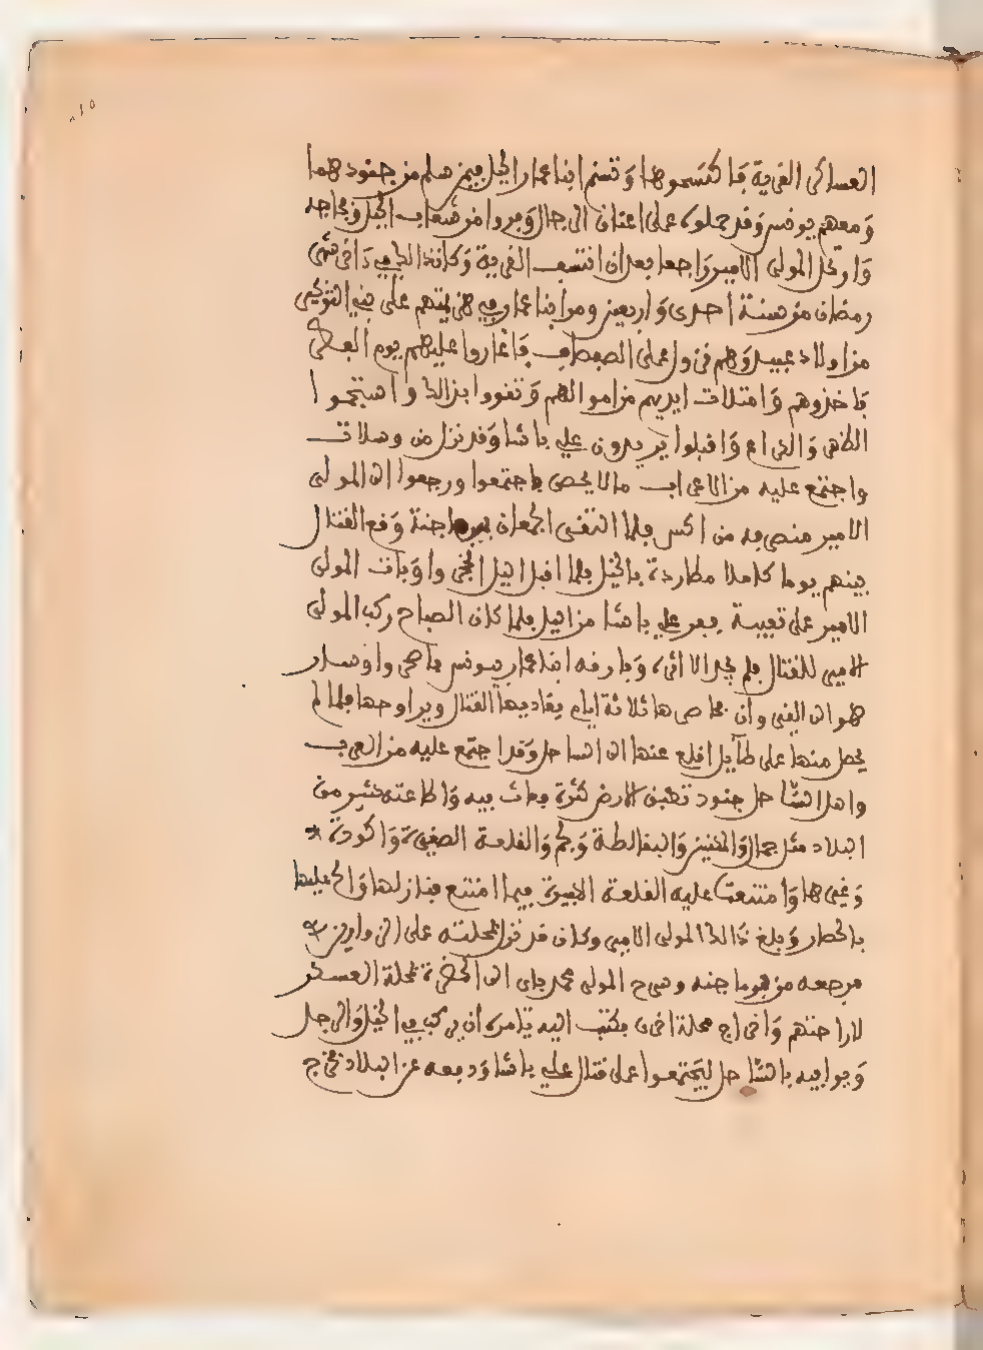 ٨١٥
العساكر القرية فاكتسحوها وتسنم ابنا عمار الجبل فيمن سلم من جنودهما
ومعهم يونس وقد حملوه على اعناق الرجال ومروا من شعاب الجبل
وارتحل المولى الامير راجعا بعد ان انتسف القرية وكان ذالك في
رمضان من سنة احدى واربعين ومر ابنا عمار في هزيمتهم على
من اولاد عبيد وهم نزول على فاغاروا عليهم يوم
فاخذوهم وامتلات ايديهم من اموالهم وتقووا بذالك
واقبلوا يريدون علي باشا وقد نزل من وسلات
واجتمع عليه من الاعراب ما لا يحصى فاجتمعوا ورجعوا الى المولى
الامير منصرفه من فلما التقى الجمعان وقع القتال
بينهم يوما كاملا مطاردة بالخيل فلما اقبل اليل وبات المولى
الامير على تعبية ففر علي باشا من اليل فلما كان الصباح ركب المولى
الامير للقتال فلم يجد الا اثره وفارقه ابنا عمار ويونس وسار
هو الى القيروان فحاصرها ثلاثة ايام يغاديها القتال ويراوحها فلما لم
يحصل منها على طآيل اقلع عنها الى الساحل وقد اجتمع عليه من العرب
واهل الساحل جنود تطبق الارض كثرة فعاث فيه واطاعته كثير من
البلاد مثل جمال والمكنين والبقالطة وبجم والقلعة الصغيرة واكودة
وغيرها وامتنعت عليه القلعة الكبيرة فيما امتنع فنازلها والح عليها
بالحصار وبلغ ذالك المولى الامير وكان قد نزل بمحلته على
مرجعه من وسرح المولى محمد باى الى الحضرة بمحلة العسكر
لاراحتهم واخراج محلة اخرى فكتب اليه يامره ان يركب في الخيل والرجل
ويوافيه بالساحل ليجتمعوا على قتال علي باشا ودفعه عن البلاد فخرج